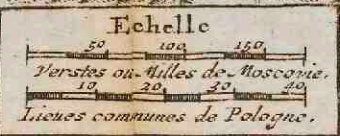 Echelle
50 100 150
Verstes ou Milles de Moscovie.
10 20 30 40
Lieues communes de Pologne.